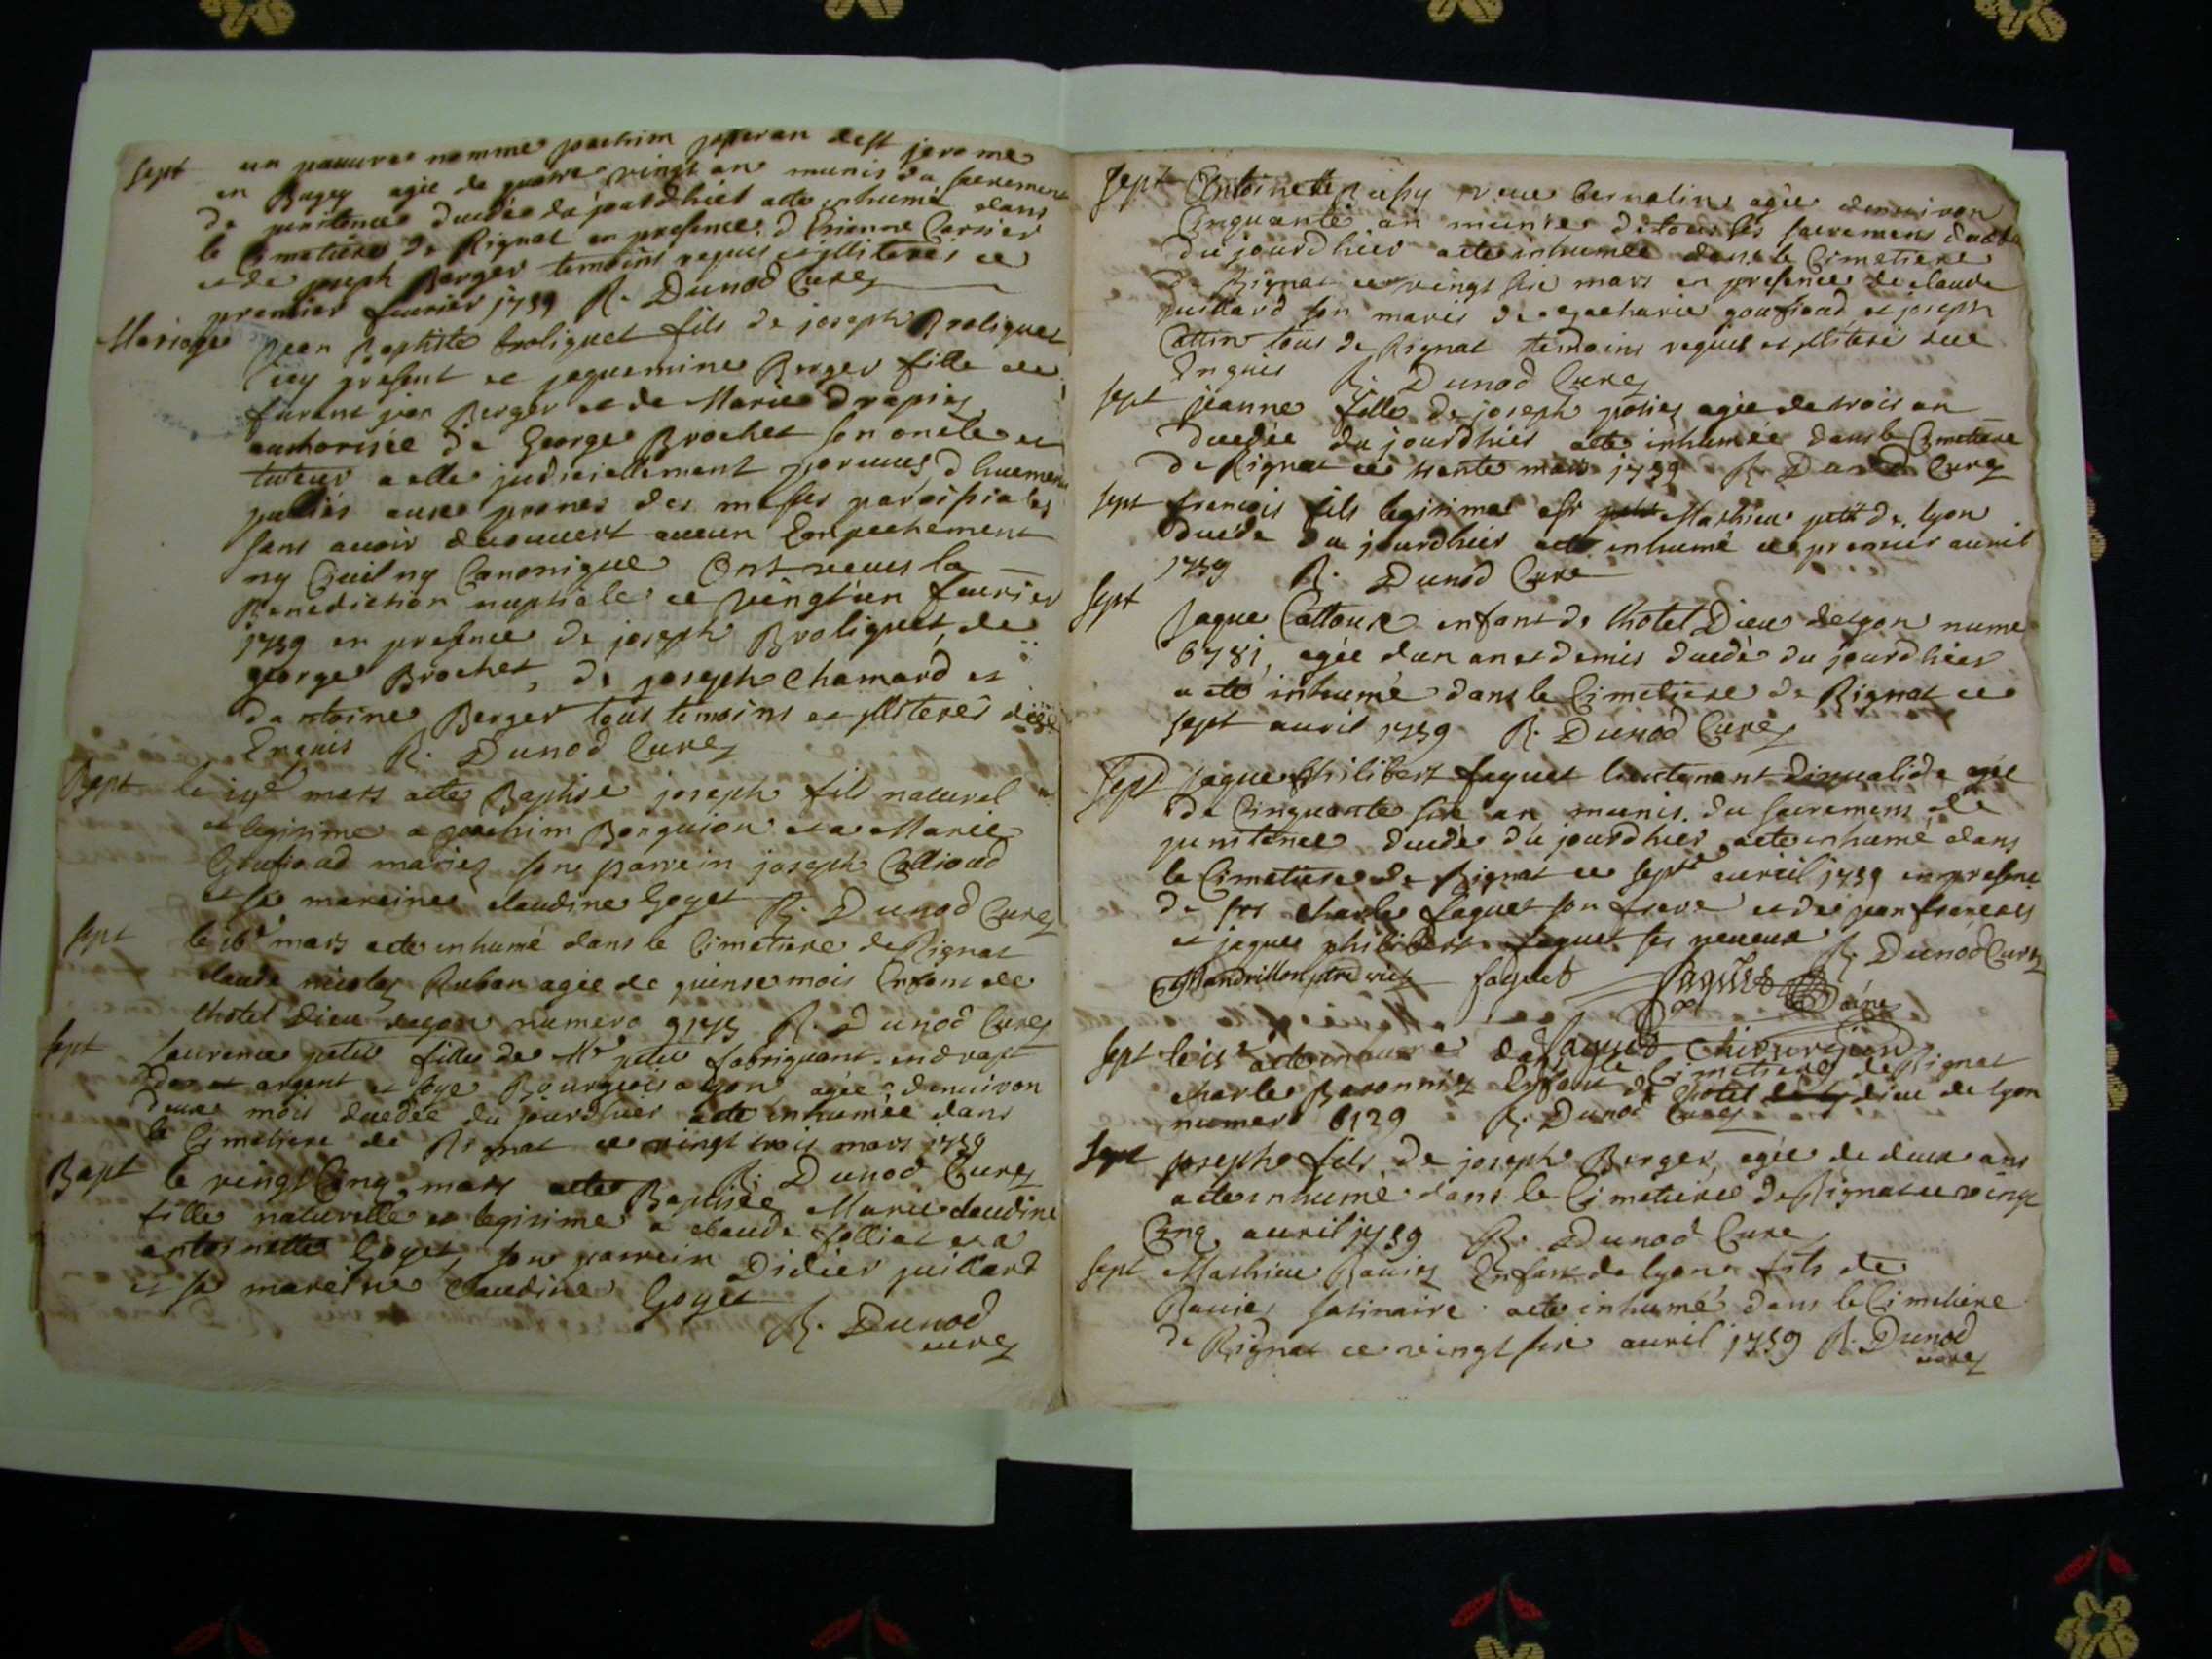 Sept un pauure nomme joachim jofferan de st jerome
en Bugey agée de quatre vingt an munis du sacrement
de penitence decedé du jourdhier a ete inhumé dans
le Cimetiere de Rignat en presence d Etienne Carrier
et de joseph Berger temoins requis et illiterés ce
premier feurier 1759 R. Dunod Curé
Mariage Jean Baptiste broliquet fils de joseph Broliquet
icy present et jaquemine Berger fille de
furent jean Berger et de Marie Drapier
authorisée de George Brochet son oncle et
tuteur a elle judiciellement poruus, d huement
publiés aux prones des messes paroissiales
sans auoir decouuert aucun Empechement
ny Ciuil ny Canonique Ont receus la
Benediction nuptiale ce vingt un feurier
1759 en presence de joseph Broliquet, de
george Brochet, de joseph Chamard et
dantoine Berger tous temoins et illiterés de ce
Enquis R. Dunod Curé
Bapt le mars a ete Baptisé joseph fils naturel
et legitime a joachim Borguion et a Marie
Goufioud mariez son parrein joseph Collioud
et sa mareine claudine Goyet R. Dunod Curé
Sept le 16e mars a ete inhumé dans le Cimetiere de Rignat
claude nicolas Ruban agée de quinse mois Enfant de
lhotel Dieu de lyon numero R. Dunod Curé
Sept Laurence petit fille de Mr petit fabriquant en drapt
dor et argent et soye Bourgeois a lyon agée denuiron
deux mois decedée du jourdhier a ete inhumée dans
le Cimetiere de Rignat ce vingt trois mars 1759
R. Dunod Curé
Bapt le vingt Cinq mars a ete Baptisée Marie claudine
fille naturelle et legitime a claude folliat et a
antoinette Goyet, son parrein Didier puillard
et sa mareine Claudine Goyet
R. Dunod
curé
Sept Antoinette veue bernolin agée denuiron
Cinquante an munie de tous les sacremens decedée
du jourdhier a ete inhumée dans le Cimetiere
de Rignat ce vingt six mars en presence de claude
puillard son maris de zacharie goufioud et joseph
Cattin tous de Rignat temoins requis et illiterés de ce
Enquis R. Dunod Curé
Sept jeanne fille de joseph agée de trois an
decedée du jourdhier a ete inhumée dans le Cimetiere
de Rignat ce trente mars 1759 R. Dunod Curé
Sept francois fils legitime a sr Mathieu petit de lyon
decedé du jourdhier a ete inhumé ce premier auril
1759 R. Dunod Curé
Sept Jaque Cattoux enfant de lhotel Dieu de lyon nume
6781, agée dun an et demis decedé du jourdhier
a eté inhumé dans le Cimetiere de Rignat ce
sept auril 1759 R. Dunod Curé
Sept jaque philibert faguet lieutenant dinualide agée
de Cinquante six an munis du sacremens de
penitence decedé du jourdhier a ete inhumé dans
le Cimetiere de Rignat ce septe auril 1759 en presence
de srs charle faguet son frere et de jean francois
et jaques philibert faguet ses neueux R. Dunod Curé
Mandrillon ptre vice faguet faguet lainé
faguet Chirurgien
Sept le a ete inhumé dans le Cimetiere de Rignat
charle Baronnier Enfant de lhotel dieu de lyon
numero 6129 R. Dunod Curé
Sept joseph fils de joseph Berger, agée de deux ans
a ete inhumé dans le Cimetiere de Rignat ce vingt
Cinq auril 1759 R. Dunod Curé
Sept Mathieu Bauier Enfant de lyon fils de
Bauier satinaire a ete inhumé dans le Cimetiere
de Rignat ce vingt six auril 1759 R. Dunod
curé